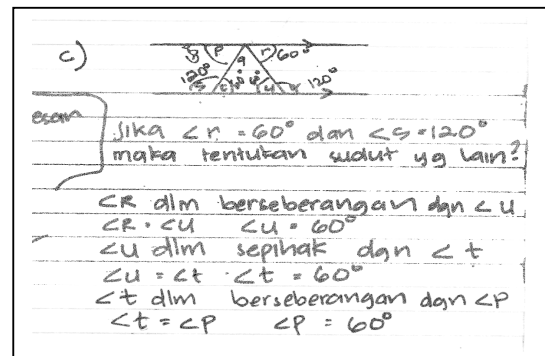 c)
P q r 60°
120° s t u 120°
esain
Jika ∠r = 60° dan ∠s = 120°
maka tentukan sudut yg lain?
∠R dlm berseberangan dgn ∠u
∠R = ∠u ∠u = 60°
∠u dlm sepihak dgn ∠t
∠u = ∠t ∠t = 60°
∠t dlm berseberangan dgn ∠P
∠t = ∠P ∠P = 60°